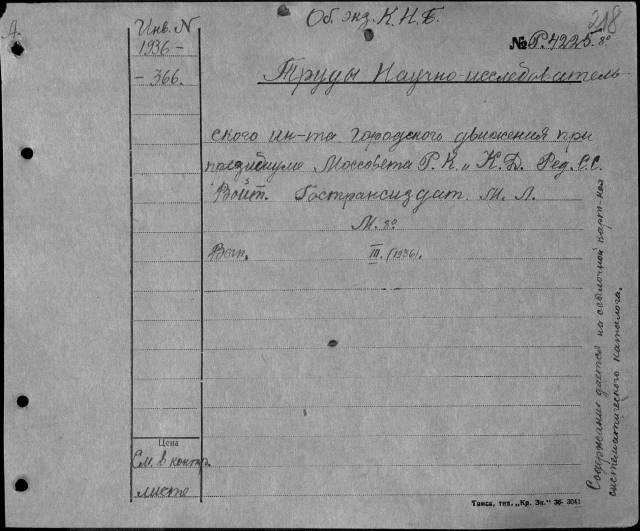 218
Об. экз. К.Н.Б.
Д.
Инв. N
1936 -
- 366.
№ Р.4225.8°
Труды Научно-исследователь-
ского ин-та городского движения при
президиуме Моссовета Р.К. и К.Д. Ред. С.С.
Войт. Гострансиздат. М. Л.
М. 8°
Вып. III. (1936).
Содержание дается на ссылочной карт-ке
систематического каталога.
Цена
См. в контр.
листе
Такса, тип. „Кр. Зн.“ 36- 3041